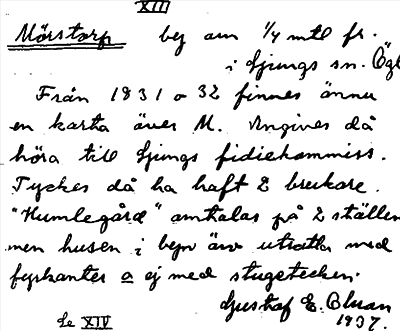 XIII
Mörstorp bej om 1/4 mtl fr.
i Ljungs sn. Ögl
Från 1831 o 32 finnes ännu
en karta över M. Angives då
höra till Ljungs fideikommiss.
Tyckes då ha haft 2 brukare.
"Humlegård" omtalas på 2 ställen
men husen i byn äro utsatta med
fyrkanter o ej med stugetecken.
Gustaf E. Oluan
1937.
Se XIV